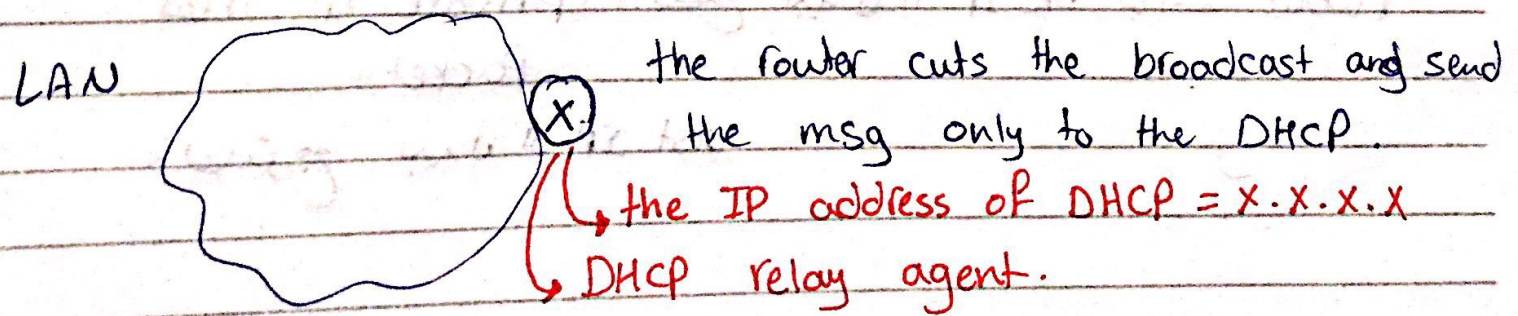 LAN
the router cuts the broadcast and send
X
the msg only to the DHCP.
the IP address of DHCP = X.X.X.X
DHCP relay agent.